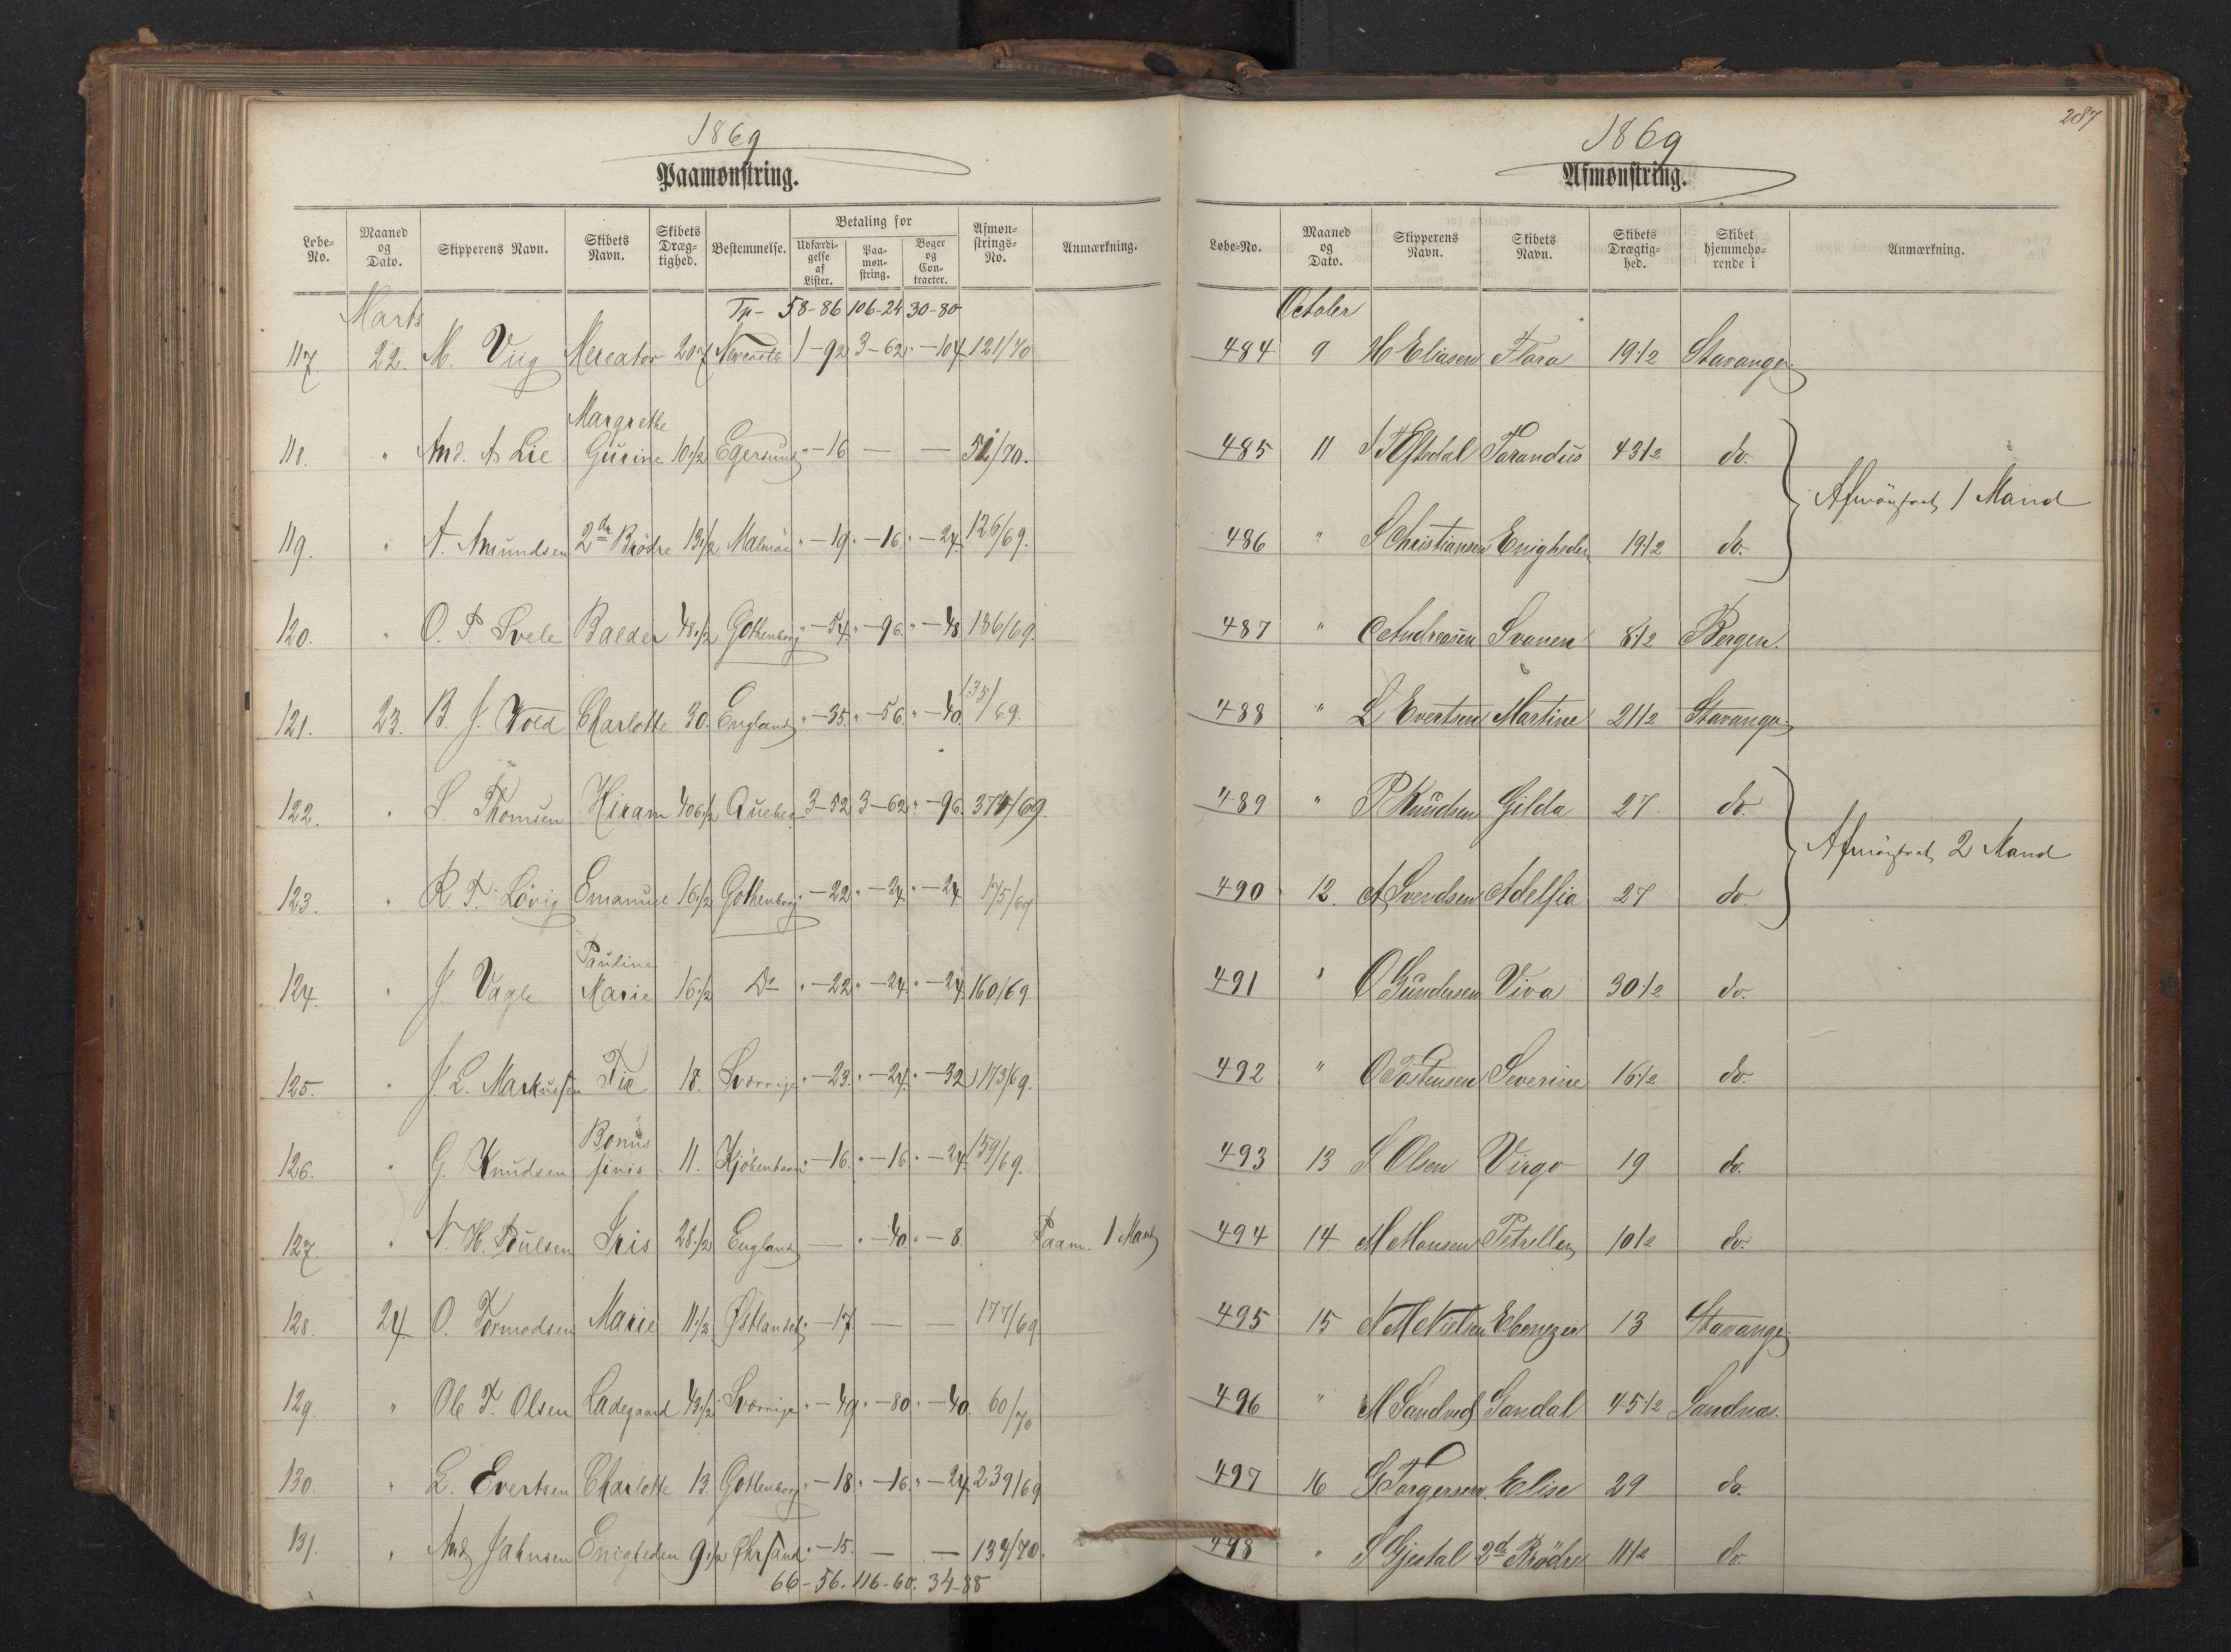 1869
Paamønstring.
Løbe-No. Maaned og Dato. Skipperens Navn. Skibets Navn. Skibets Dræg-tighed. Bestemmelse. Betaling for Udfærdi-gelse af Lister. Paa-møn-string. Bøger og Con-tracter. Afmøn-strings-No. Anmærkning.
Marts Tp- 58-86 106-24 30-80
117. 22. M. Viig Mercator 207 1-92 3-62 "-104 121/70
118. " And. A Lie Margrethe Gurine 10 1/2 Egersund "-16 — — 51/70.
119. " A. Amundsen 2de Brödre 13 1/2 Malmöe "-19 "-16 "-24 126/69.
120. " O. P. Svele Balder 48 1/2 Gothenborg "-54 "-96 "-48 136/69.
121. 23. B. J. Wold Charlotte 30. England "-35 "-56 "-40 135/69.
122. " S. Thomsen Hiram 406 1/2 Quebec 3-52 3-62 "-96 374/69.
123. " R. T. Lövig Emanuel 16 1/2 Gothenborg "-22 "-24 "-24 175/69
124. " J. Vagle Pauline Marie 16 1/2 Do "-22 "-24 "-24 160/69
125. " J. L. Markussen Fie 18. Sverrige "-23 "-24 "-32 173/69.
126. " G. Knudsen Bonus finis 11. Kjöbenhavn "-16 "-16 "-24 159/69.
127. " N. H. Poulsen Iris 28 1/2 England — "-40 "-8. Paam. 1 Mand
128. 24 O. Tormodsen Marie 11 1/2 Østlandet "-17 — — 177/69
129. " Ole T. Olsen Ladegaard 43 1/2 Sverrige "-49 "-80 "-40. 60/70
130. " L. Evertsen Charlotte 13. Gothenborg "-18 "-16 "-24 239/69
131. " And. Jahnsen Enigheden 9 1/2 Chrsand "-15 — — 134/70.
66-56. 116-60. 34-88
287
1869
Afmønstring.
Løbe-No. Maaned og Dato. Skipperens Navn. Skibets Navn. Skibets Drægtig-hed. Skibet hjemmehø-rende i Anmærkning.
October
484 9 H Eliasen Flora 19 1/2 Stavanger
485 11 Tarandus 43 1/2 do.
Afmönstret 1 Mand
486 " S Christiansen Enigheden 19 1/2 do.
487 " C Andreasen Svanen 8 1/2 Bergen.
488 " L Evertsen Martine 21 1/2 Stavanger
489 " P Knudsen Gilda 27 do.
Afmönstret 2 Mand
490 12. A Svendsen Adelfia 27 do.
491 " O Gundersen Viva 30 1/2 do.
492 " O Tostensen Severine 16 1/2 do.
493 13 S Olsen Virgo 19 do.
494 14 M Monsen Petrellen 10 1/2 do.
495 15 N M Nielsen Ebenezer 13 Stavanger
496 " M Sandved Sandal 45 1/2 Sandnæs.
497 16 G Torgersen Elise 29 do.
498 " S Gjestal 2de Brödre 11 1/2 do